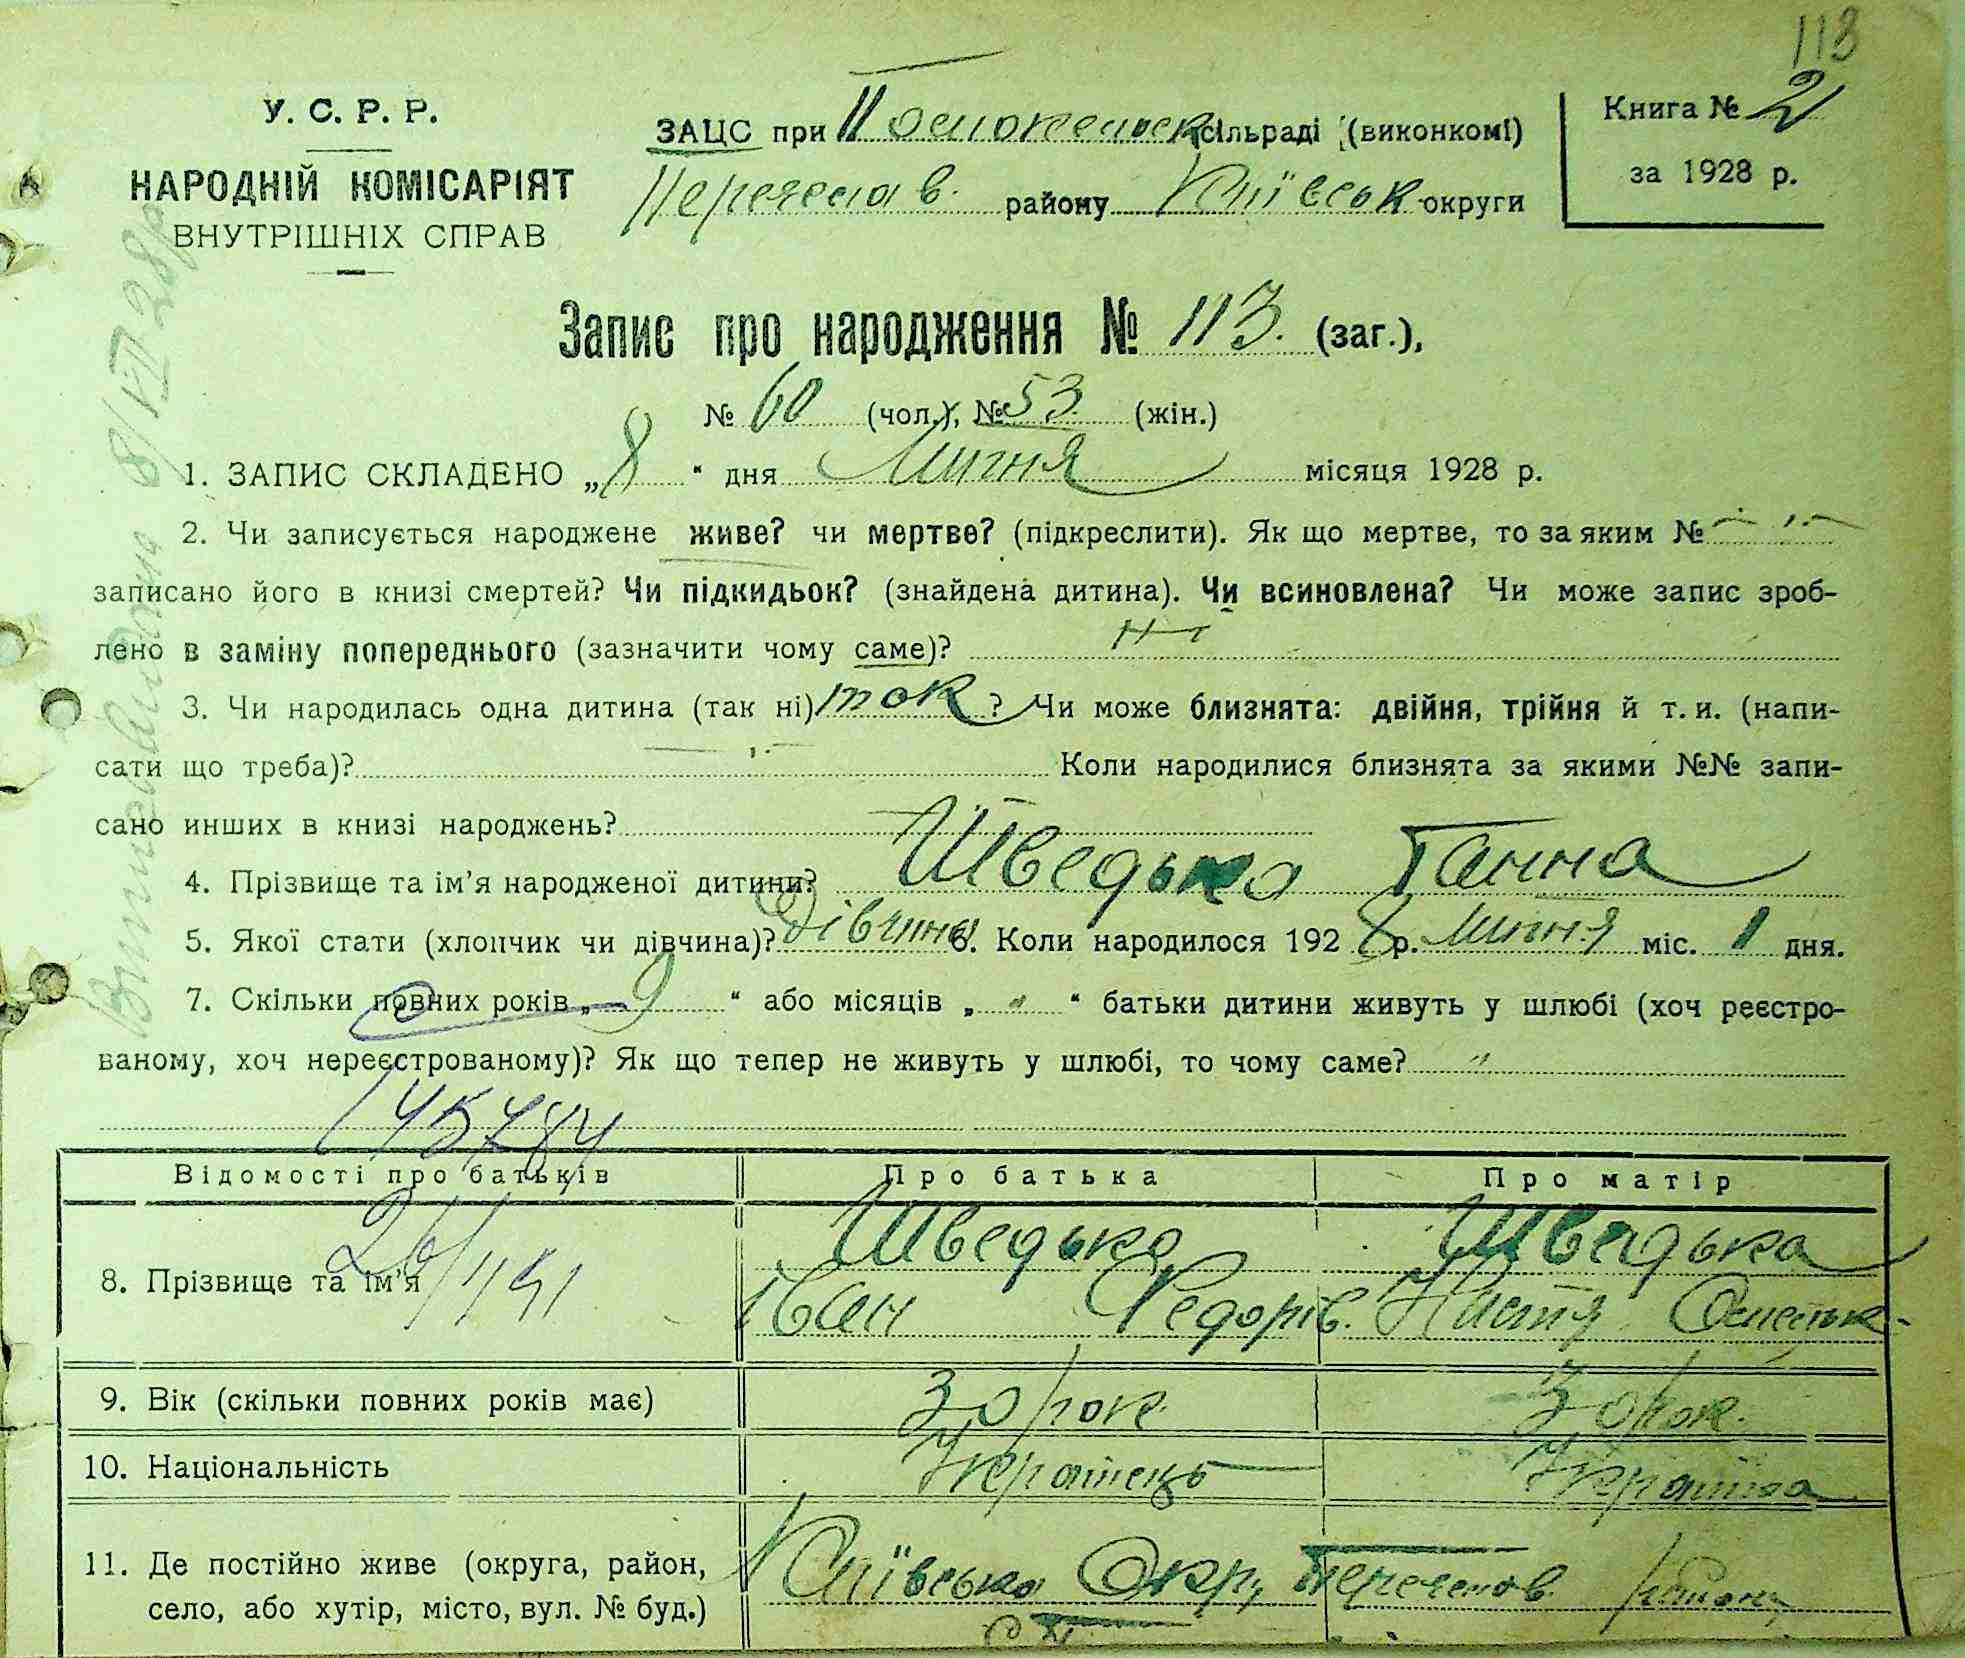 113
У. С. Р. Р.
НАРОДНІЙ КОМІСАРІЯТ
ВНУТРІШНІХ СПРАВ
ЗАЦС при сільраді (виконкомі)
району Київськ округи
Книга № 2
за 1928 р.
Запис про народження № 113. (заг.),
№ 60 (чол.), № 53. (жін.)
1. ЗАПИС СКЛАДЕНО „8" дня Липня місяця 1928 р.
2. Чи записується народжене живе? чи мертве? (підкреслити). Як що мертве, то за яким №
записано його в книзі смертей? Чи підкидьок? (знайдена дитина). Чи всиновлена? Чи може запис зроб-
лено в заміну попереднього (зазначити чому саме)? Ні
3. Чи народилась одна дитина (так ні) так? Чи може близнята: двійня, трійня й т. и. (напи-
сати що треба)? Коли народилися близнята за якими №№ запи-
сано инших в книзі народжень?
4. Прізвище та ім'я народженої дитини? Шведька Ганна
5. Якої стати (хлопчик чи дівчина)? дівчина 6. Коли народилося 1928 р. Липня міс. 1 дня.
7. Скільки повних років „ 9 " або місяців „ " " батьки дитини живуть у шлюбі (хоч реєстро-
ваному, хоч нереєстрованому)? Як що тепер не живуть у шлюбі, то чому саме? "
Відомості про батьків Про батька Про матір
8. Прізвище та ім'я Шведько Шведька
Іван Федорів. Настя
9. Вік (скільки повних років має) 30 рок. 30 рок.
10. Національність Українець Українка
11. Де постійно живе (округа, район, Київська Окр,
село, або хутір, місто, вул. № буд.)